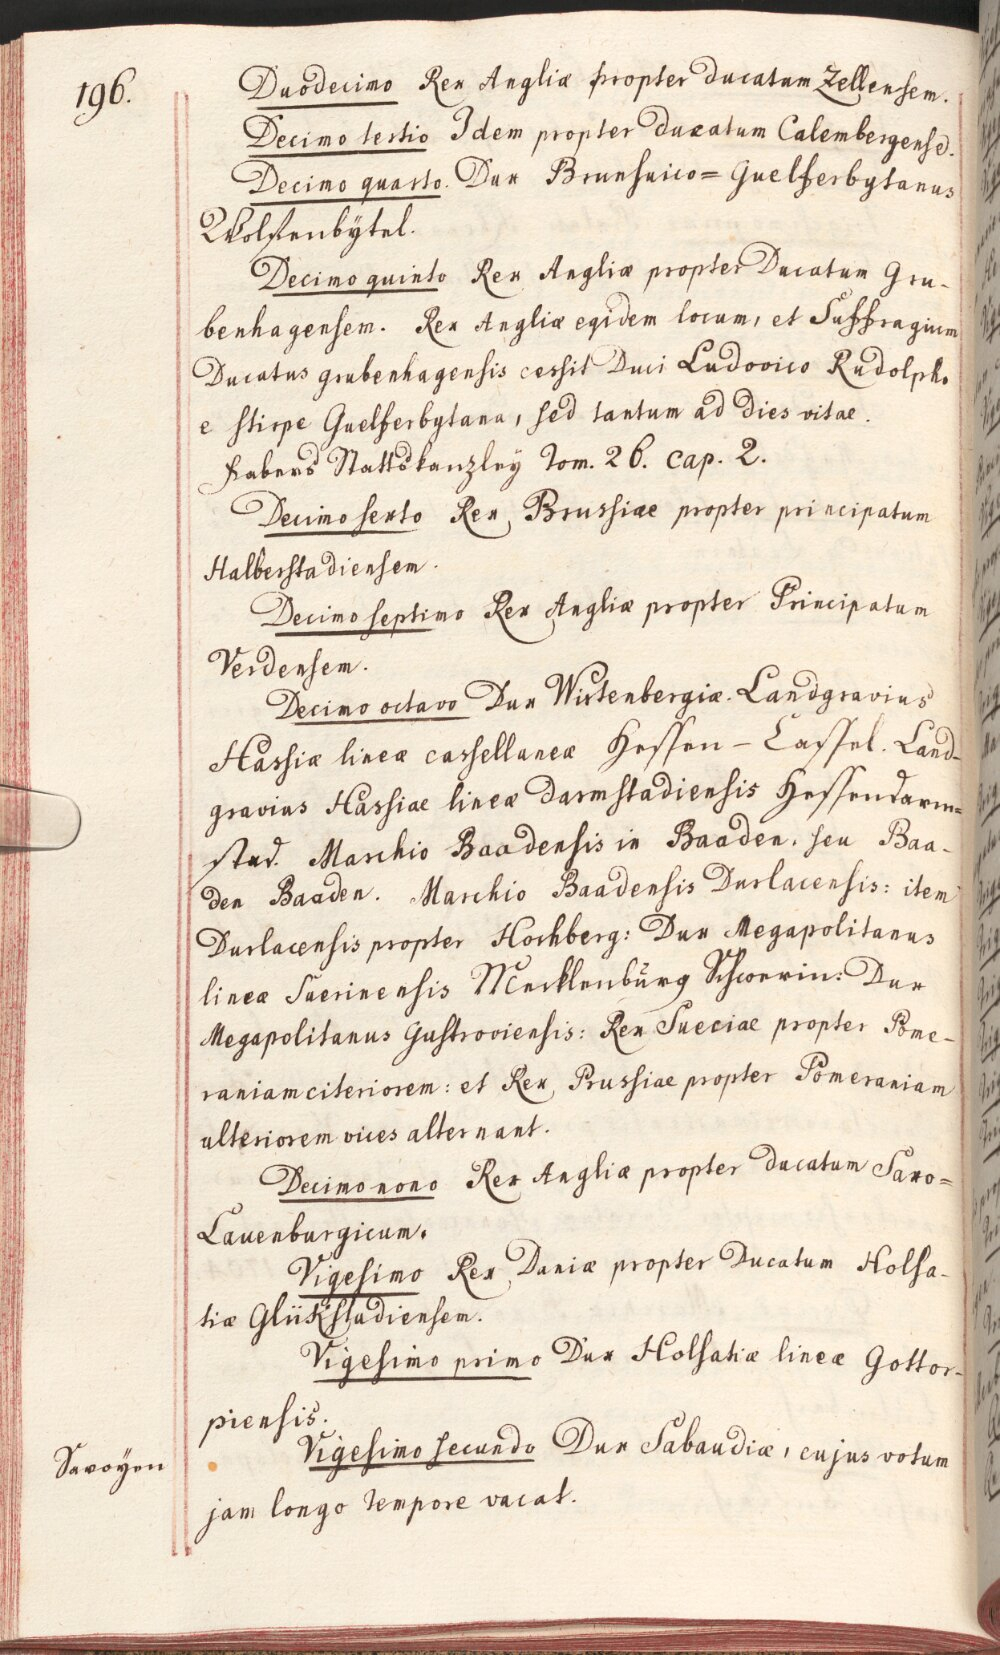 196.
Duodecimo Rex Angliæ propter ducatum Zellensem.
Decimo tertio Idem propter ducatum Calembergense.
Decimo quarto. Dux Brunsuico= Guelferbytanus
Wolffenbÿtel.
Decimo quinto Rex Angliæ propter Ducatum Gru-
benhagensem. Rex Angliæ eqidem locum, et Suffragium
Ducatus grubenhagensis cessit Duci Ludovico Rudolpho
e stirpe Guelferbytana, sed tantum ad dies vitae.
Fabers Stattskanzleÿ Tom. 26. cap. 2.
Decimo sexto Rex Brussiae propter principatum
Halberstadiensem.
Decimo septimo Rex Angliæ propter Principatum
Verdensem.
Decimo octavo Dux Wirtenbergiæ. Landgravius
Hassiæ lineæ cassellaneæ Hessen - Cassel. Land-
gravius Hassiae lineæ darmstadiensis Hessendarm=
stad. Marchio Baadensis in Baaden, seu Baa-
den Baaden. Marchio Baadensis Durlacensis: item
Durlacensis propter Hochberg: Dux Megapolitanus
lineæ Suerineensis Mecklenbŭrg Schwerin: Dux
Megapolitanus Gustroviensis: Rex Sueciae propter Pome-
raniam citeriorem: et Rex Prussiae propter Pomeraniam
ulteriorem vices alternant.
Decimo nono Rex Angliæ propter ducatum Saxo=
Lauenburgicum.
Vigesimo Rex Daniæ propter Ducatum Holsa-
tiæ Glükstadiensem.
Vigesimo primo Dux Holsatiæ lineæ Gottor-
piensis.
Vigesimo secundo Dux Sabaudiæ, cujus votum
Savoÿen
jam longo tempore vacat.